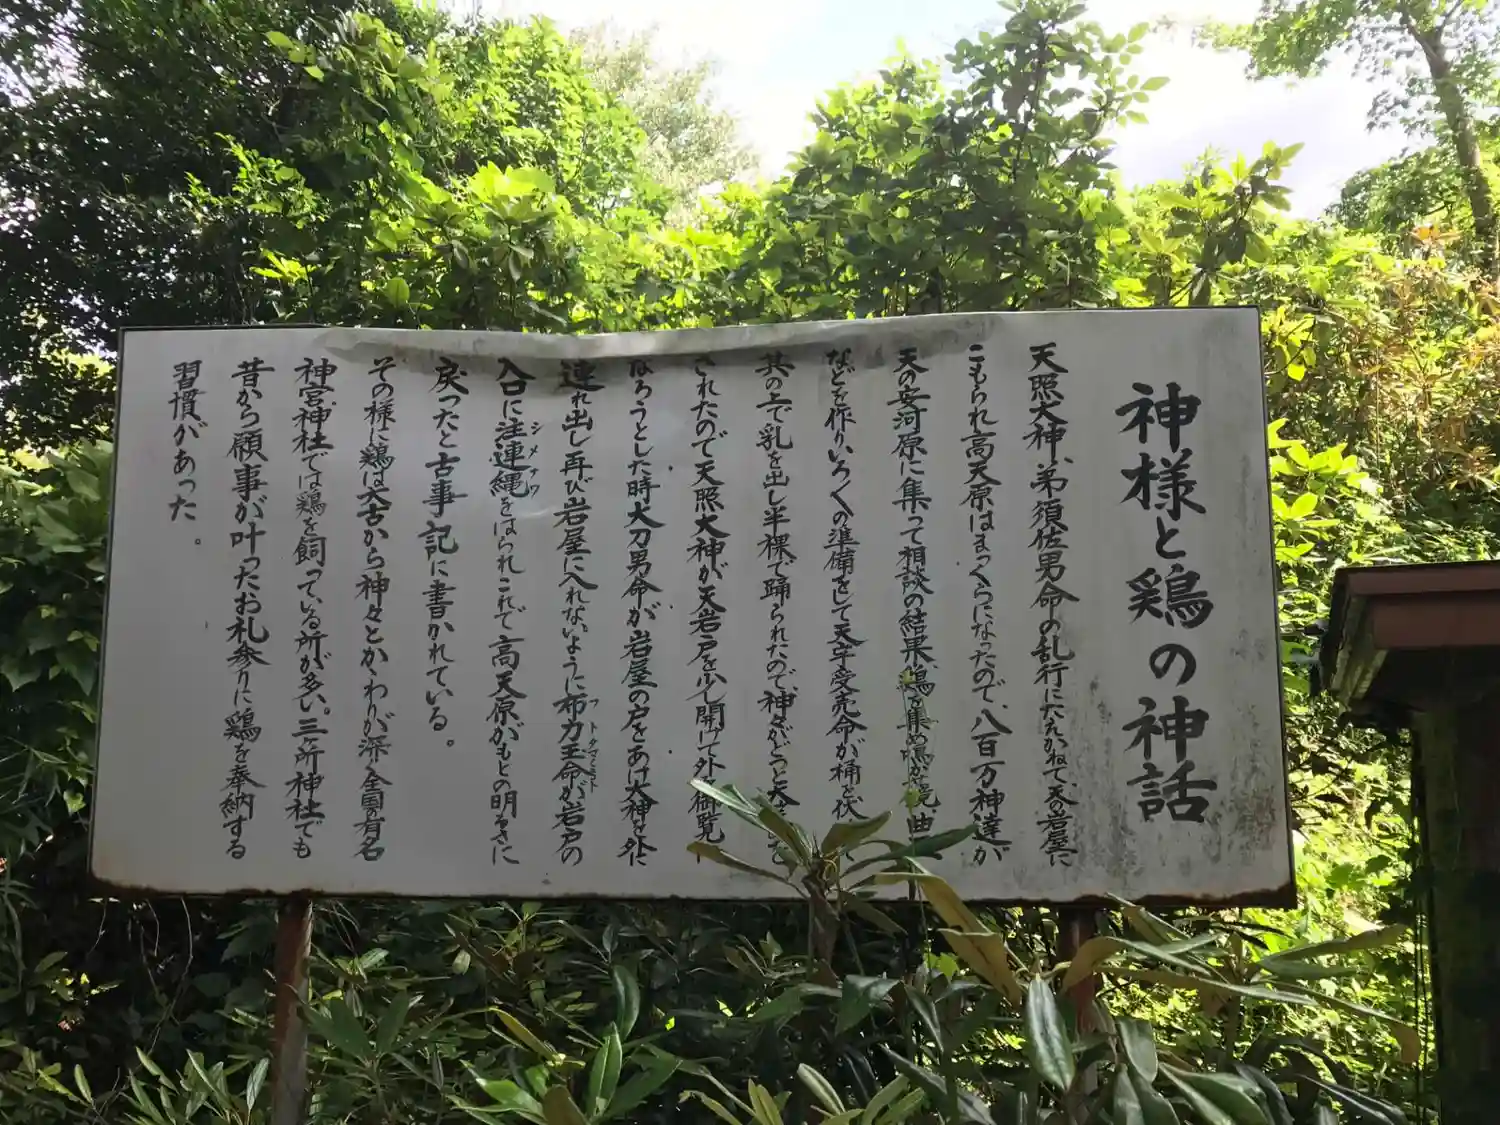 神様と鶏の神話
天照大神、弟須佐男命の乱行にたえかねて、天の岩屋に
こもられ高天原はまっくらになったので、八百万神達が
天の安河原に集って相談の結果、鶏を集め鳴かせ、鏡、曲
などを作りいろ〱の準備をして天宇受売命が桶を伏
其の上で乳を出し半裸で踊られたので、神々がどうと大
されたので天照大神が天岩戸を少し開けて外 御覧に
なろうとした時大刀男命が岩屋の戸をあけ大神を外に
連れ出し再び岩屋に入れないように布刀玉命が岩戸の
フトタマミコト
入口に注連縄をはられこれで高天原がもとの明るさに
シメナワ
戻ったと古事記に書かれている。
その様に鶏は大古から神々とかゝわりが深く全国の有名
神宮神社では鶏を飼っている所が多い。三所神社でも
昔から願事が叶ったお礼参りに鶏を奉納する
習慣があった。